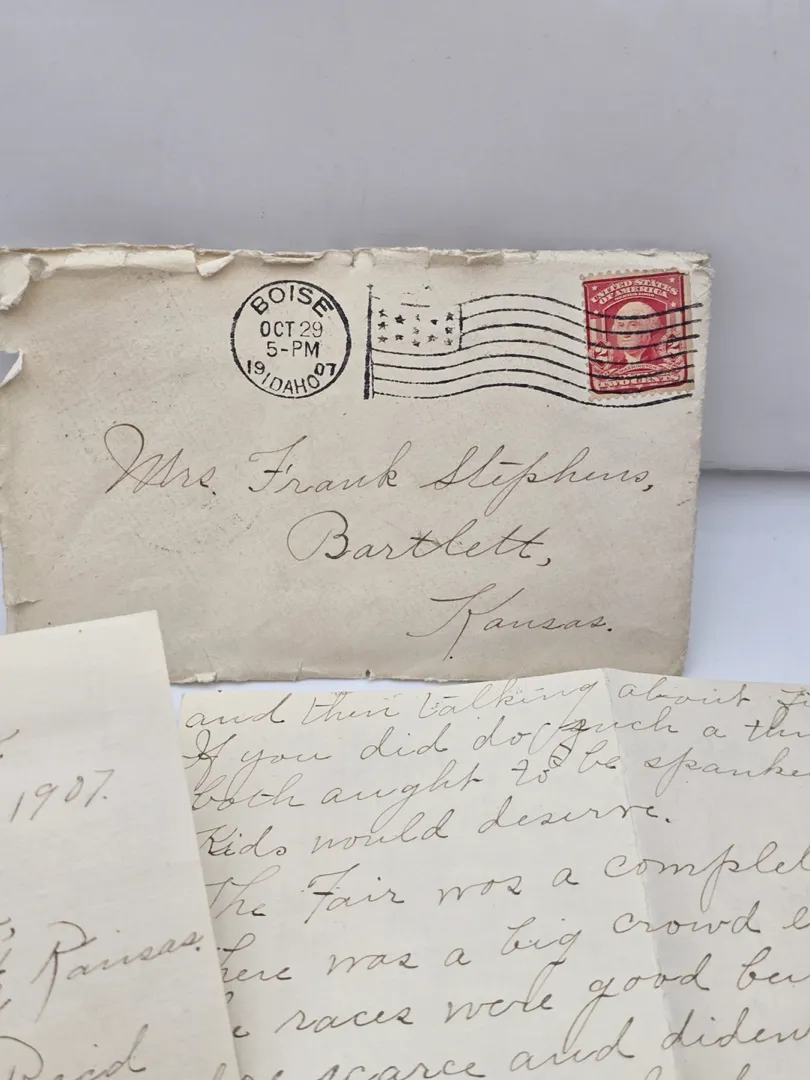 BOISE
OCT 29
5-PM
1907
IDAHO
UNITED STATES
OF AMERICA
2 2
TWO CENTS
Mrs. Frank Stephens,
Bartlett,
Kansas.
1907.
Kansas.
Reid
and then talking about
If you did do such a
both aught to be
Kids would deserve.
The Fair was a
was a big crowd
races were good
scarce and